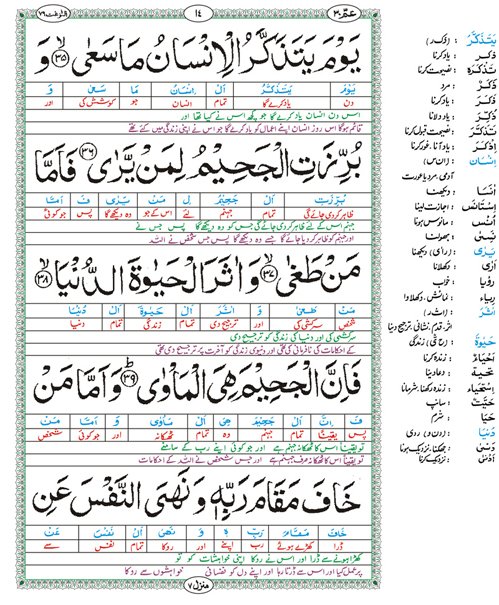 عمّ ۳۰ ۱٤ النّٰزعٰت ۷۹
يَوْمَ يَتَذَكَّرُ الْاِنْسَانُ مَا سَعٰى ﴿۳۵﴾ وَ
يَوْمَ يَتَذَكَّرُ اَلْ اِنْسَانُ مَا سَعٰى وَ
دن یاد کرے گا تمام انسان جو کوشش کی اور
اس دن انسان یاد کرے گا جو کچھ اس نے کیا تھا اور
قائم ہوگا اس روز انسان اپنے اعمال کو یاد کرے گا جو اس نے اپنی زندگی میں کئے تھے
بُرِّزَتِ الْجَحِيْمُ لِمَنْ يَّرٰى ﴿۳۶﴾ فَاَمَّا
بُرِّزَتِ اَلْ جَحِيْمُ لِ مَنْ يَرٰى فَ اَمَّا
ظاہر کردی جائے گی تمام جہنم لئے اس کے جو وہ دیکھے گا پس جو کوئی
جہنم اس کے لئے ظاہر کردی جائے گی جو وہ دیکھے گا پس جس نے
اور جہنم کو ظاہر کردیا جائے گا جسے وہ دیکھے گا پس جس شخص نے اللہ
مَنْ طَغٰى ﴿۳۷﴾ وَ اٰثَرَ الْحَيٰوةَ الدُّنْيَا ﴿۳۸﴾
مَنْ طَغٰى وَ اٰثَرَ اَلْ حَيٰوةَ اَلْ دُنْيَا
شخص سرکشی کی اور ترجیح دی تمام زندگی تمام دنیا
سرکشی کی اور دنیا کی زندگی کو ترجیح دی
کے احکامات کی نافرمانی کی تھی اور دنیوی زندگی کو آخرت پر ترجیح دی تھی
فَاِنَّ الْجَحِيْمَ هِيَ الْمَاْوٰى ﴿۳۹﴾ وَ اَمَّا مَنْ
فَ اِنَّ اَلْ جَحِيْمَ هِيَ اَلْ مَاْوٰى وَ اَمَّا مَنْ
پس یقیناً تمام جہنم وہ تمام ٹھکانہ اور جو کوئی شخص
تو یقیناً اس کا ٹھکانہ جہنم ہے اور جو کوئی اپنے رب کے سامنے
تو یقیناً اس کا ٹھکانہ صرف جہنم ہے اور جس شخص نے اللہ کے احکامات
خَافَ مَقَامَ رَبِّهٖ وَ نَهَى النَّفْسَ عَنِ
خَافَ مَقَامَ رَبِّ هٖ وَ نَهَى اَلْ نَفْسَ عَنْ
ڈرا کھڑے ہونے رب اپنے اور روکا تمام نفس سے
کھڑے ہونے سے ڈرا اور اس نے روکا اپنی خواہشات کو تو
پر عمل کیا اور اس سے ڈرتا رہا اور اپنے دل کو نفسانی خواہشوں سے روکا
منزل ۷
يَتَذَكَّرُ : (ذکر)
ذَكَرَ : یاد کرنا
تَذْكِرَةٌ : نصیحت کرنا
ذَكَرٌ : مرد
ذِكْرٌ : یاد کرنا
ذَكَّرَ : یاد دلانا
تَذَكَّرَ : نصیحت قبول کرنا
اِذَّكَرَ : یاد آنا، غور کرنا
اِنْسَانٌ : (ان س)
آدمی مرد یا عورت
اٰنَسَ : دیکھنا
اِسْتَاْنَسَ : اجازت لینا
اَنَسَ : مانوس ہونا
نَسِيَ : بھولنا
يَرٰى : (رای) دیکھنا
اَرٰى : دکھلانا
رُؤْيَا : خواب
رِيَاءٌ : نمائش، دکھلاوا
اٰثَرَ : (اثر)
اثر، قدم، نشانی، ترجیح دینا
حَيٰوةٌ : (ح ی) زندگی
اَحْيَاءٌ : زندہ کرنا
تَحِيَّةٌ : دعا دینا
اِسْتِحْيَاءٌ : زندہ رکھنا، شرمانا
حَيَّةٌ : سانپ
حَيَا : شرم
دُنْيَا : (د ن و) ردی
دَنٰى : جھکنا، نزدیک ہونا
اَدْنٰى : نزدیک کرنا